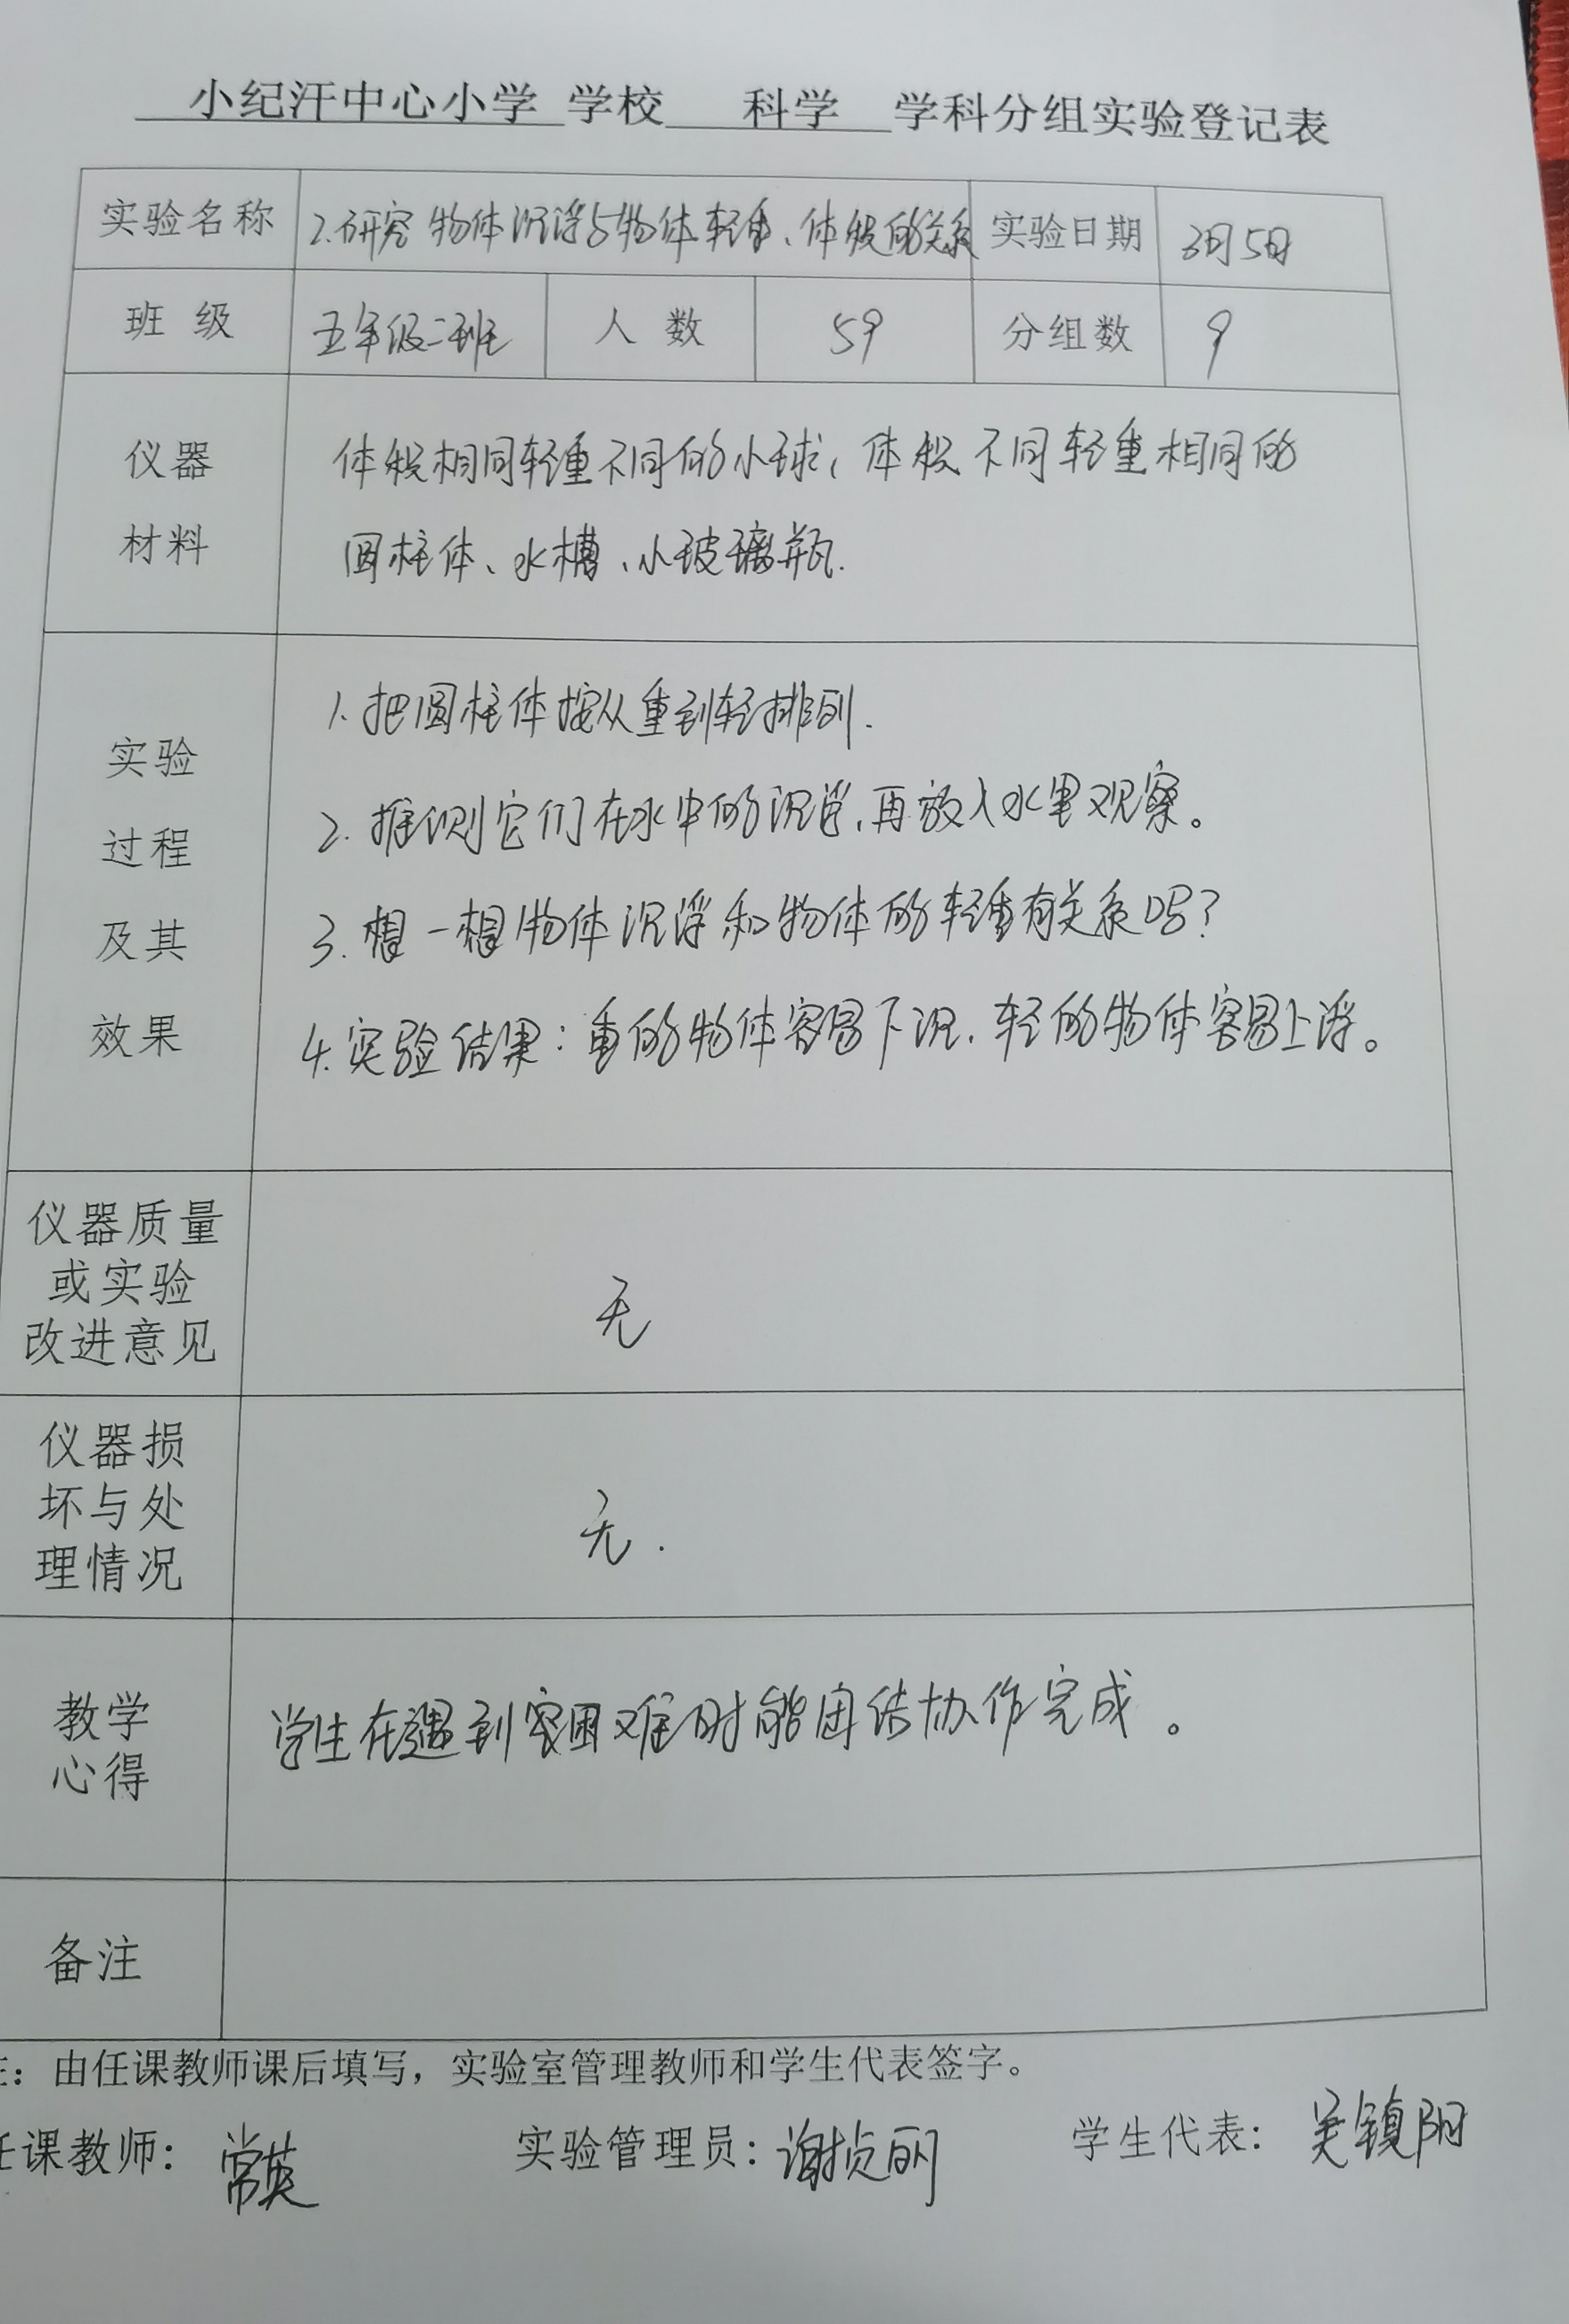 小纪汗中心小学 学校 科学 学科分组实验登记表
实验名称 2.研究物体沉浮与物体轻重、体积的关系 实验日期 3月5日
班 级 五年级二班 人 数 59 分组数 9
仪器 体积相同轻重不同的小球、体积不同轻重相同的
材料 圆柱体、水槽、小玻璃瓶.
1.把圆柱体按从重到轻排列.
实验
2.推测它们在水中的沉浮,再放入水里观察。
过程
3.想一想物体沉浮和物体的轻重有关系吗?
及其
效果 4.实验结果:重的物体容易下沉.轻的物体容易上浮。
仪器质量
或实验 无
改进意见
仪器损
坏与处 无.
理情况
教学 学生在遇到困难时能团结协作完成。
心得
备注
:由任课教师课后填写,实验室管理教师和学生代表签字。
课教师: 常英 实验管理员: 谢贞丽 学生代表: 吴镇阳